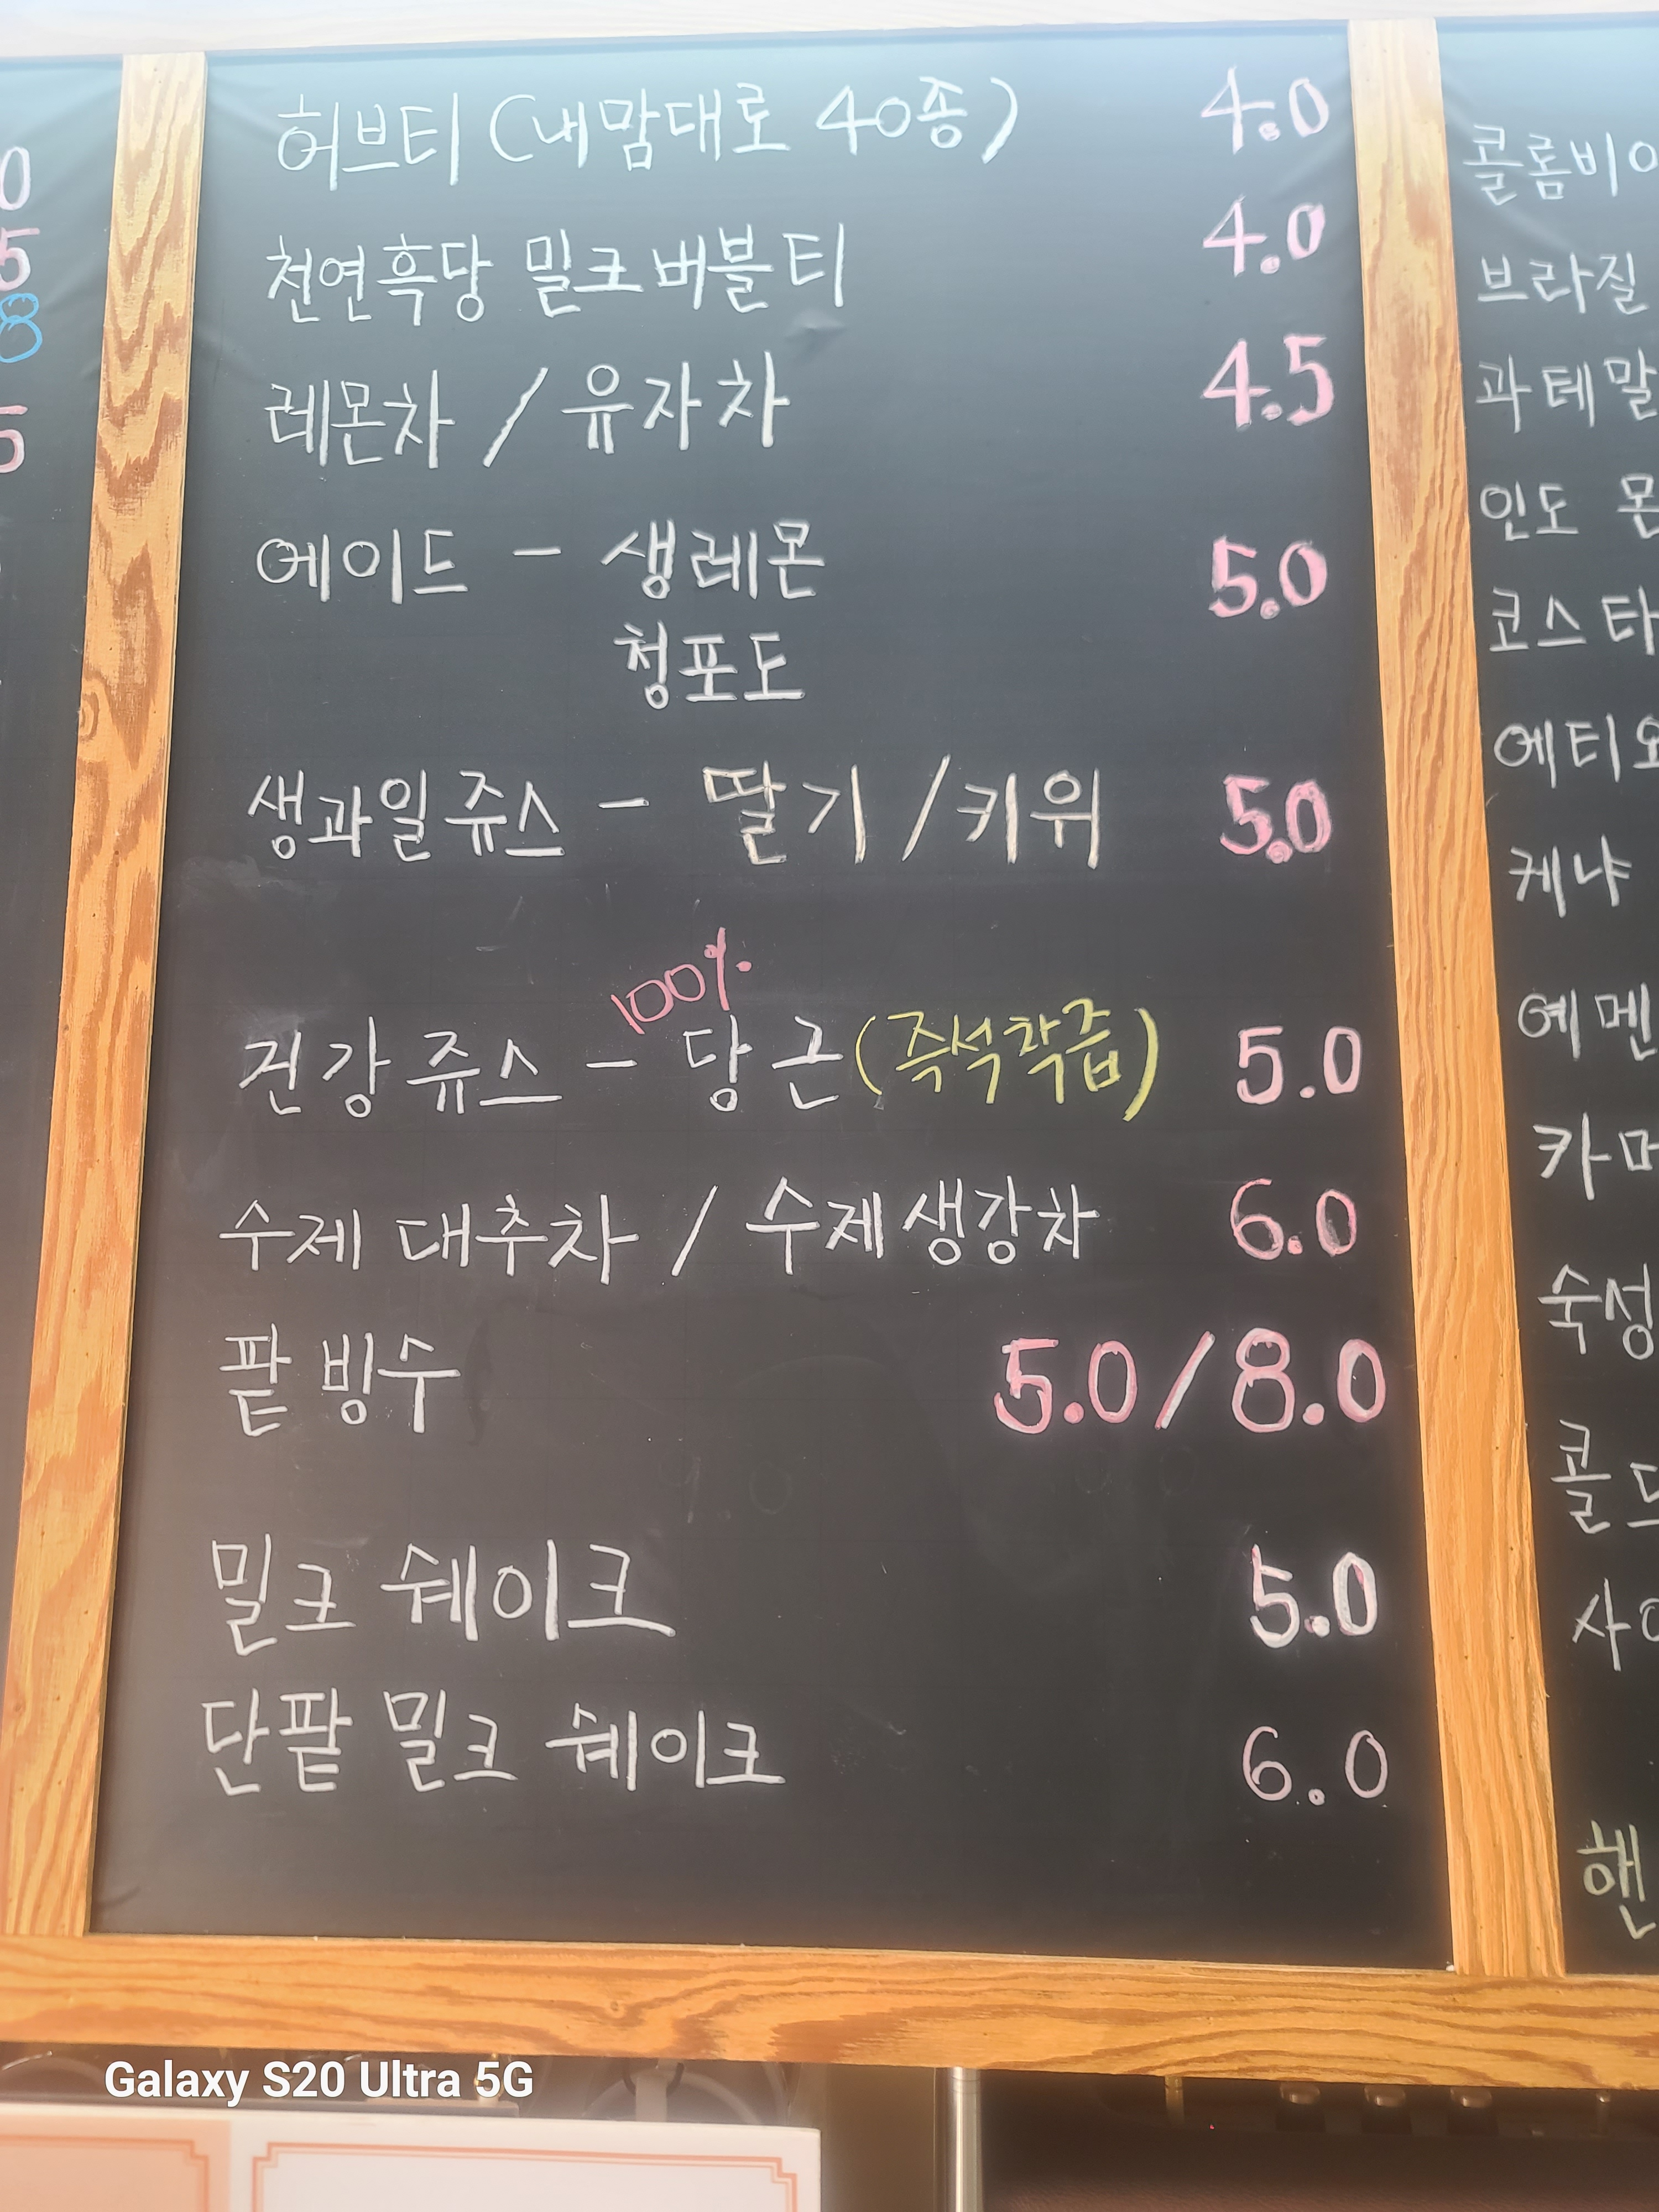 허브티 (내맘대로 40종) 4.0
천연흑당 밀크버블티 4.0
레몬차 / 유자차 4.5
에이드 - 생레몬 5.0
청포도
생과일쥬스 - 딸기 / 키위 5.0
100%
건강쥬스 - 당근 (즉석착즙) 5.0
수제 대추차 / 수제생강차 6.0
팥빙수 5.0 / 8.0
밀크 쉐이크 5.0
단팥 밀크 쉐이크 6.0
0
5
8
5
콜롬비아
브라질
과테말
인도 몬
코스타
에티오
케냐
예멘
카머
숙성
콜드
사이
핸
Galaxy S20 Ultra 5G